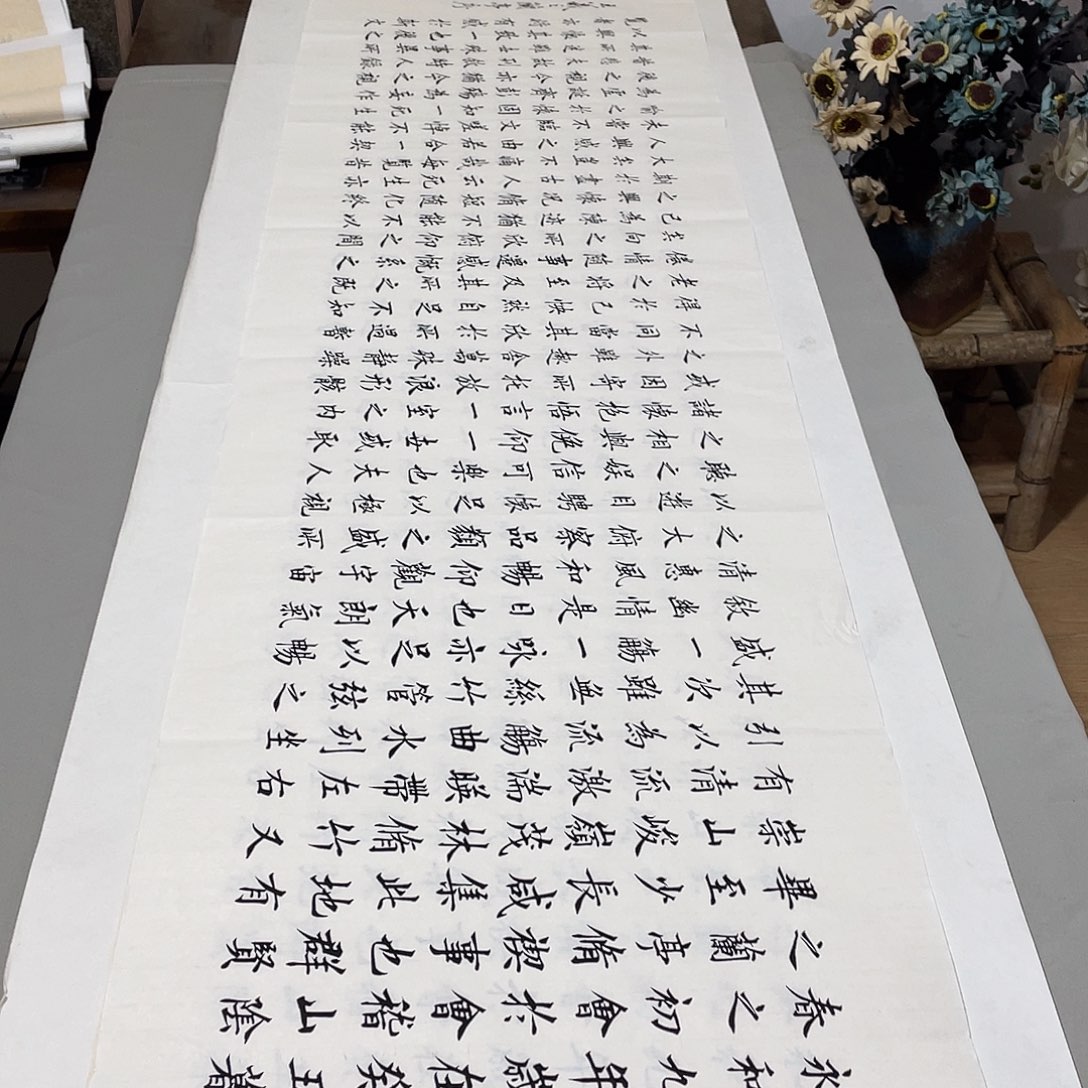 永和九年歲在癸丑暮
春之初會於會稽山陰
之蘭亭脩禊事也群賢
畢至少長咸集此地有
崇山峻嶺茂林脩竹又
有清流激湍暎帶左右
引以為流觴曲水列坐
其次雖無絲竹管弦之
盛一觴一咏亦足以暢
敘幽情是日也天朗氣
清惠風和暢仰觀宇宙
之大俯察品類之盛所
以遊目騁懷足以極視
聽之娛信可樂也夫人
之相與俛仰一世或取
諸懷抱悟言一室之內
或因寄所托放浪形骸
之外雖趣舍萬殊靜躁
不同當其欣於所遇暫
得於己怏然自足不知
老之將至及其所之既
倦情隨事遷感慨系之
矣向之所欣俯仰之間
已為陳迹猶不能不以
之興懷況脩短隨化終
期於盡古人云死生亦
大矣豈不痛哉每覽昔
人興感之由若合一契
未嘗不臨文嗟悼不能
喻之於懷固知一死生
為虛誕齊彭殤為妄作